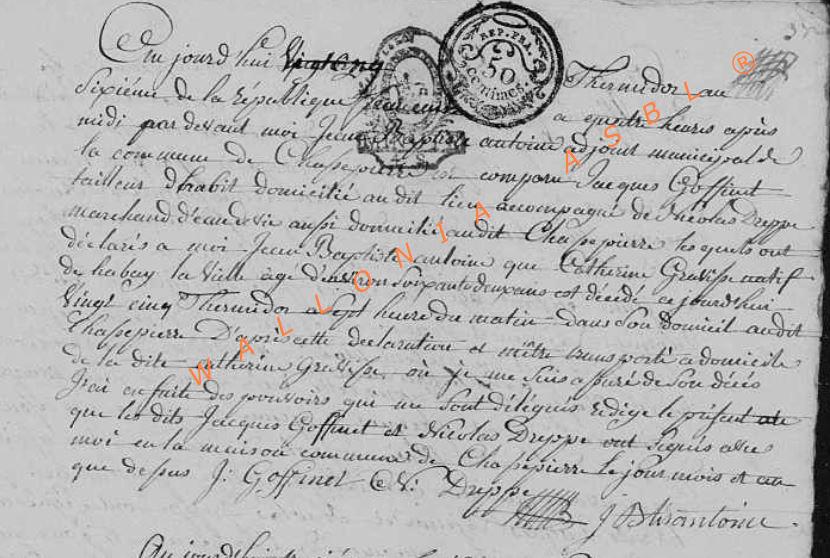 Cu jourd'hui vingt cinq Thermidor an
Sixiéme de la république francaise a quatre heures après
midi par devant moi Jean Baptiste antoine adjoint municipal de
la commune de Chasepierre est comparu Jacques Goffinet
tailleur d'habit domicilié au dit lieu accompagné de Nicolas Dreppe
marchand d'eau de vie aussi domicilié audit Chasepierre lesquels ont
déclarés a moi Jean Baptiste antoine que Catherine Gravisse natif
de habay la Ville âgé d'environ Soixante deux ans est décédé cejourd'hui
vingt cinq Thermidor a sept heure du matin dans son domicil audit
Chasepierre D'après cette declaration et mêtre transporté a domicile
de la dite Catherine Gravisse où je me suis assuré de son décès
J'ai en suite des pouvoirs qui me sont délégués rédigé le présent
que les dits Jacques Goffinet et Nicolas Dreppe ont signés avec
moi en la maison commune de Chasepierre le jour mois et an
que dessus J: Goffinet N: Dreppe
JBtisantoine
REP. FRA.
50
centimes.
WALLONIA ASBL ®